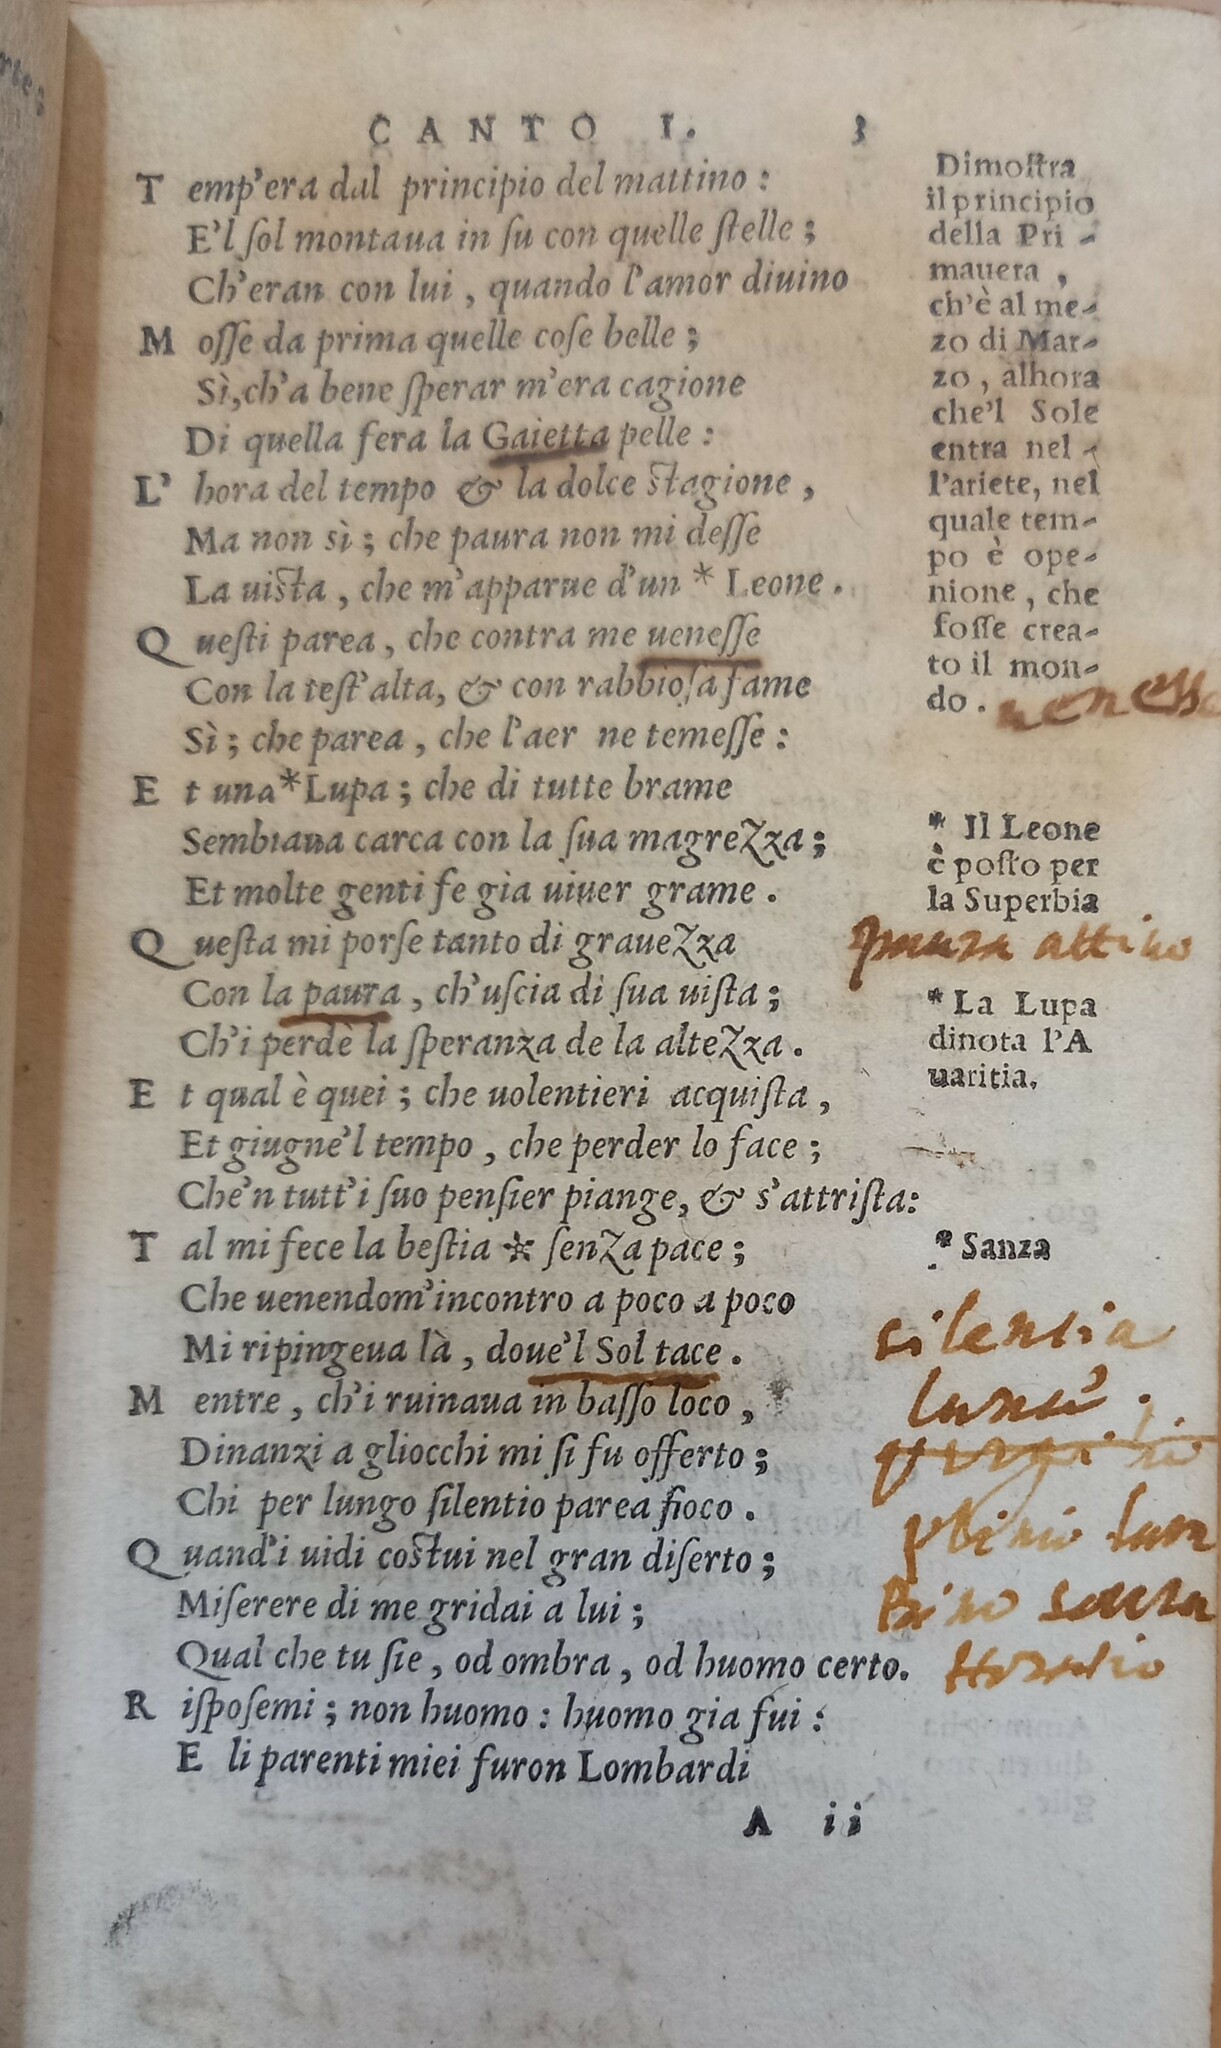 CANTO I. 3
Temp'era dal principio del mattino:
E'l ſol montaua in ſu con quelle ſtelle;
Ch'eran con lui, quando l'amor diuino
Moſſe da prima quelle coſe belle;
Sì, ch'a bene ſperar m'era cagione
Di quella fera la Gaietta pelle:
L'hora del tempo & la dolce ſtagione,
Ma non sì; che paura non mi deſſe
La uiſta, che m'apparue d'un * Leone.
Queſti parea, che contra me ueneſſe
Con la teſt'alta, & con rabbioſa fame
Sì; che parea, che l'aer ne temeſſe:
Et una * Lupa; che di tutte brame
Sembiaua carca con la ſua magrezza;
Et molte genti fe gia uiuer grame.
Queſta mi porſe tanto di grauezza
Con la paura, ch'uſcia di ſua uiſta;
Ch'i perdè la ſperanza de la altezza.
Et qual è quei; che uolentieri acquiſta,
Et giugne'l tempo, che perder lo face;
Che'n tutt'i ſuo penſier piange, & s'attriſta:
Tal mi fece la beſtia * ſenza pace;
Che uenendom'incontro a poco a poco
Mi ripingeua là, doue'l Sol tace.
Mentre, ch'i ruinaua in baſſo loco,
Dinanzi a gliocchi mi ſi fu offerto;
Chi per lungo ſilentio parea fioco.
Quand'i uidi coſtui nel gran diſerto;
Miſerere di me gridai a lui;
Qual che tu ſie, od ombra, od huomo certo.
Riſpoſemi; non huomo: huomo gia fui:
E li parenti miei furon Lombardi
A ii
Dimoſtra
il principio
della Pri-
mauera,
ch'è al me-
zo di Mar-
zo, àlhora
che'l Sole
entra nel-
l'ariete, nel
quale tem-
po è ope-
nione, che
foſſe crea-
to il mon-
do.
ueneſſe
* Il Leone
è poſto per
la Superbia
paura attiuo
* La Lupa
dinota l'A
uaritia.
* Sanza
silentia
lunæ.
plinio
Horatio